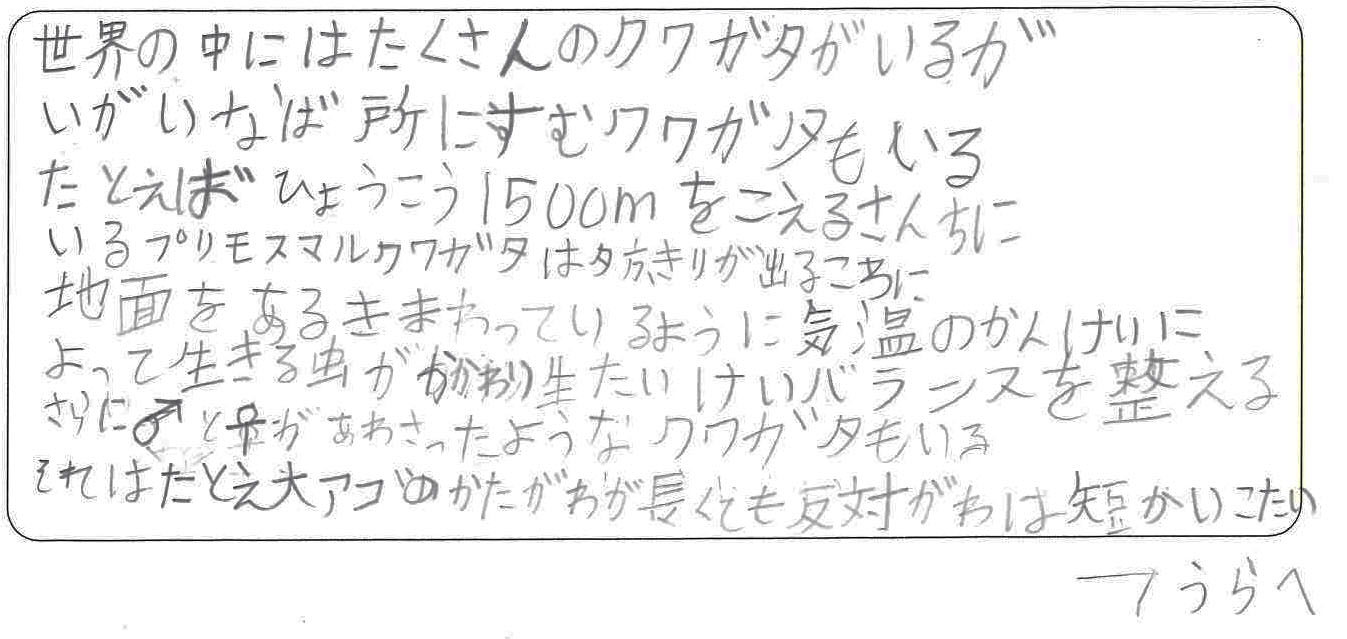 世界の中にはたくさんのクワガタがいるが
いがいなば所にすむクワガタもいる
たとえばひょうこう1500mをこえるさんちに
いるプリモスマルクワガタは夕方きりが出るころに
地面をあるきまわっているように気温のかんけいに
よって生きる虫がかかわり生たいけいバランスを整える
さらに♂と♀があわさったようなクワガタもいる
それはたとえ大アゴのかたがわが長くても反対がわは短かいこたい
→うらへ